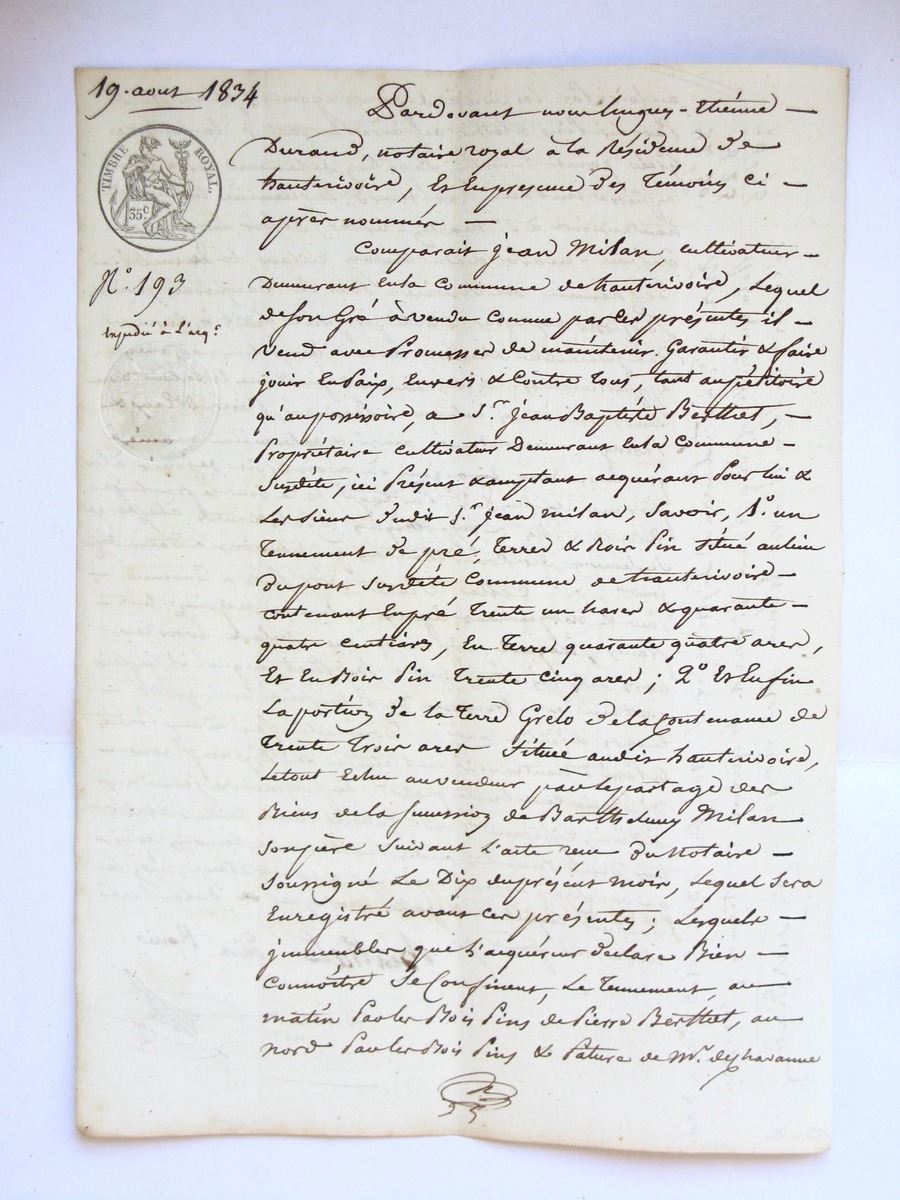 19. aout 1834
TIMBRE ROYAL.
35c
N°. 193
Expédié à l'acq.r
Pardevant nous hugues-Etiénne
Durand, notaire royal à la Résidence de
hauterivoire, Et En presence des Témoins ci-
après nommés
Comparait jean Milan, cultivateur
Demeurant En la Commune de hauterivoire, Lequel
de son Gré à vendu comme par ces présentes il
vend avec Promesses de maintenir. Garantir & faire
jouir En Paix, Envers & Contre tous, tant au pétitoire
qu'au possessoire, a S.r jean Baptiste Berthet,
Propriétaire cultivateur Demeurant En la Commune
Susdite, ici Présent & acceptant acquérant Pour lui &
Les Siens dudit S.r jean milan, Savoir, 1°. un
Tennement de pré, Terres & Bois Pin situé au lieu
du pont susdité Commune de hauterivoire
contenant En pré Trente un hares & quarante
quatre centiares, En Terre quarante quatre ares,
Et En Bois Pin Trente Cinq ares; 2° Et Enfin
La portion de la Terre Grelo de la Contenance de
Trente Trois ares située audit hauterivoire,
Le tout Echu au vendeur par le partage des
Biens de la succession de Barthelemy Milan
son père suivant L'acte recu du Notaire
soussigné Le Dix du présent mois, Lequel sera
Enregistré avant ces présentes; Lesquels
jmmeubles que L'acquéreur déclare Bien
connoître Se Confinent, Le Tennement, au
matin Par les Bois Pins de Pierre Berthet, au
nord Par les Bois Pins & Pature de Mr. deschavanne